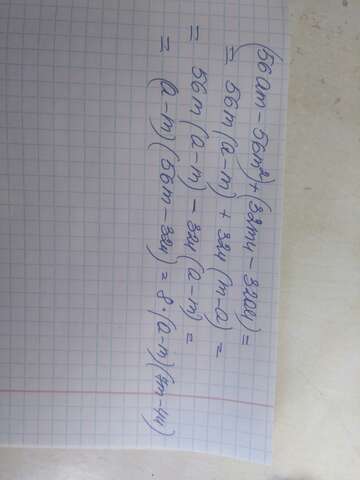 (56am - 56m²) + (32mu - 32au) =
= 56m (a-m) + 32u (m-a) =
= 56m (a-m) - 32u (a-m) =
= (a-m) (56m - 32u) = 8·(a-m)(7m-4u)